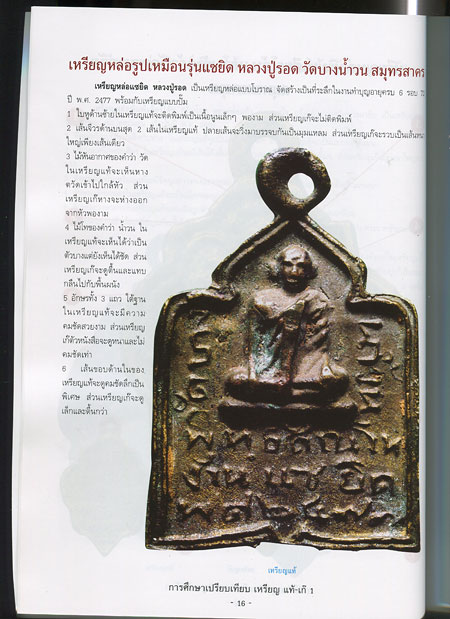 เหรียญหล่อรูปเหมือนรุ่นแซยิด หลวงปู่รอด วัดบางน้ำวน สมุทรสาคร
เหรียญหล่อแซยิด หลวงปู่รอด เป็นเหรียญหล่อแบบโบราณ จัดสร้างเป็นที่ระลึกในงานทำบุญอายุครบ 6 รอบ
ปี พ.ศ. 2477 พร้อมกับเหรียญแบบปั๊ม
1 ใบหูด้านซ้ายในเหรียญแท้จะติดพิมพ์เป็นเนื้อนูนเล็กๆ พองาม ส่วนเหรียญเก๊จะไม่ติดพิมพ์
2 เส้นจีวรด้านบนสุด 2 เส้นในเหรียญแท้ ปลายเส้นจะวิ่งมาบรรจบกันเป็นมุมแหลม ส่วนเหรียญเก๊จะรวบเป็นเส้น
ใหญ่เพียงเส้นเดียว
3 ไม้หันอากาศของคำว่า วัด
ในเหรียญแท้จะเห็นหาง
ตวัดเข้าไปใกล้หัว ส่วน
เหรียญเก๊หางจะห่างออก
จากหัวพองาม
4 ไม้โทของคำว่า น้ำวน ใน
เหรียญแท้จะเห็นได้ว่าเป็น
ตัวบางแต่ยังเห็นได้ชัด ส่วน
เหรียญเก๊จะดูตื้นและแทบ
กลืนไปกับพื้นผนัง
5 อักษรทั้ง 3 แถว ใต้ฐาน
ในเหรียญแท้จะมีความ
คมชัดสวยงาม ส่วนเหรียญ
เก๊ตัวหนังสือจะดูหนาและไม่
คมชัดเท่า
6 เส้นขอบด้านในของ
เหรียญแท้จะดูคมชัดลึกเป็น
พิเศษ ส่วนเหรียญเก๊จะดู
เล็กและตื้นกว่า
งาน แซ ยิด
เหรียญแท้
การศึกษาเปรียบเทียบ เหรียญ แท้-เก๊ 1
- 16 -